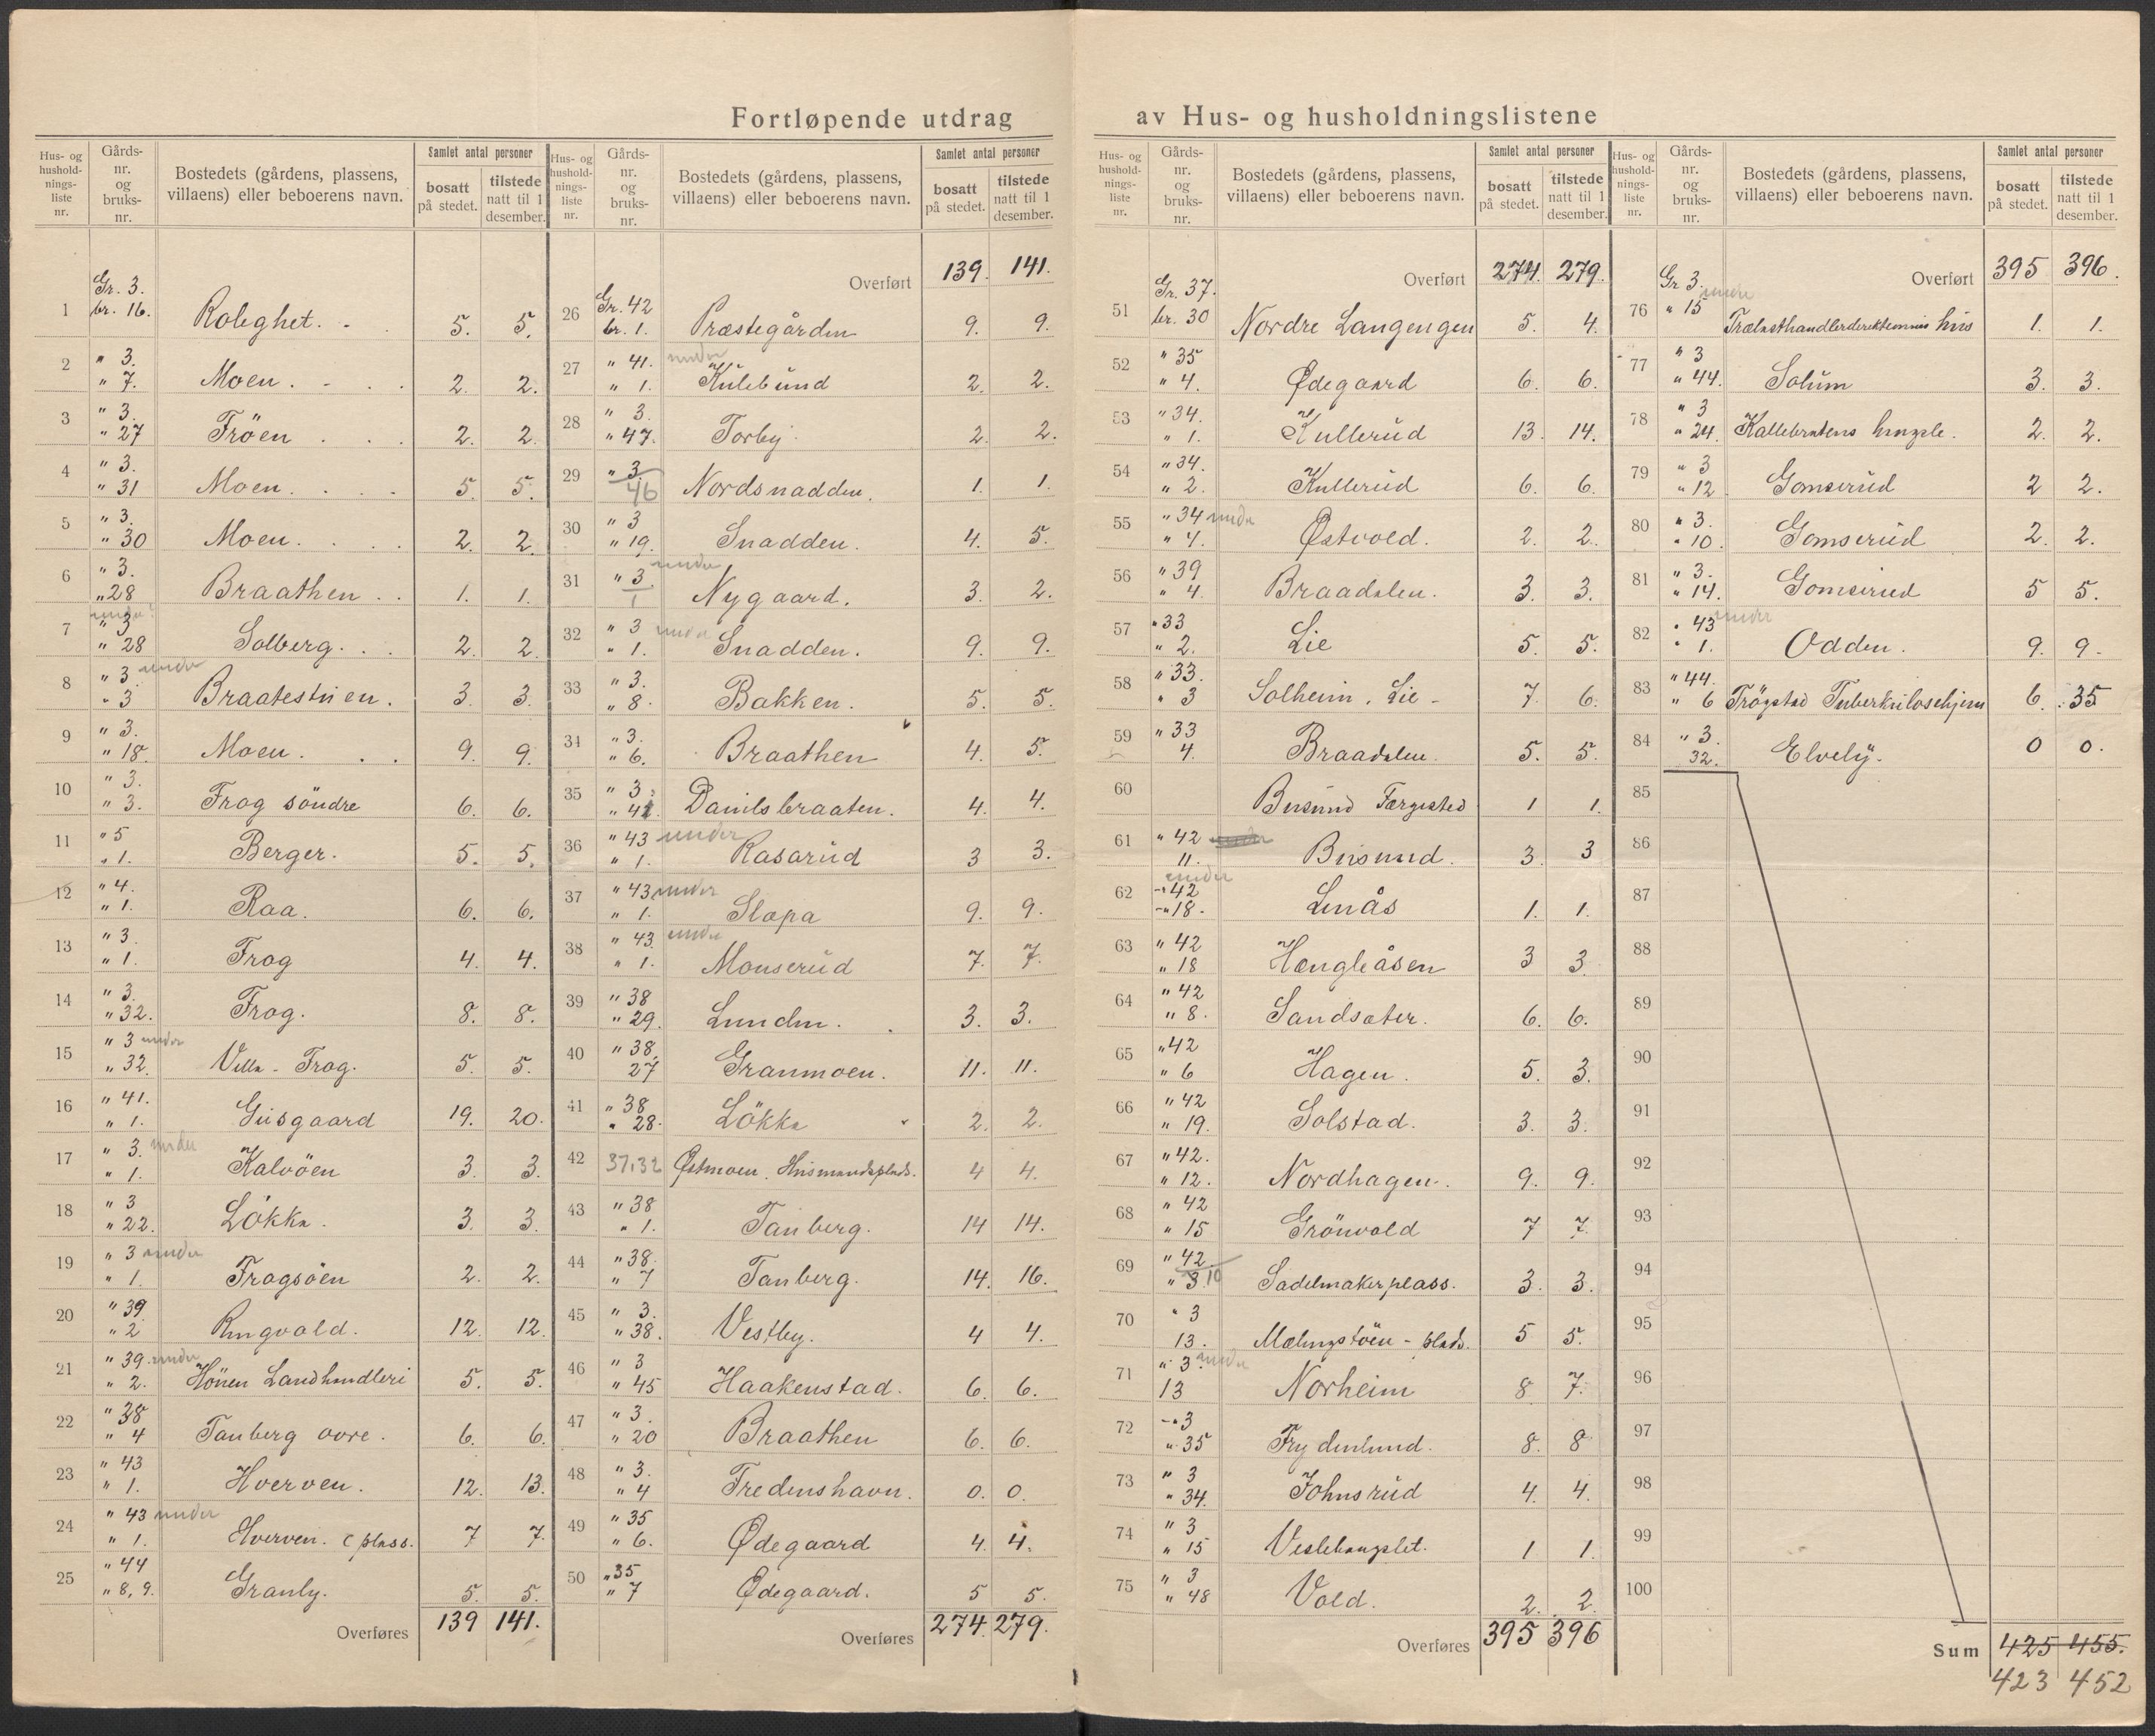 Fortløpende utdrag av Hus- og husholdningslistene
Hus- og hushold-nings-liste nr. | Gårds-nr. og bruks-nr. | Bostedets (gårdens, plassens, villaens) eller beboerens navn. | Samlet antal personer: bosatt på stedet. | tilstede natt til 1 desember.
1 Gr. 3. br. 16. Roleghet. 5. 5.
2 " 3. " 7. Moen. 2. 2.
3 " 3. " 27 Fröen 2. 2.
4 " 3. " 31 Moen. 5. 5.
5 " 3. " 30 Moen. 2. 2.
6 " 3. " 28 Braathen 1. 1.
7 under " 3 " 28 Solberg. 2. 2.
8 " 3. under " 3 Braatestuen. 3. 3.
9 " 3. " 18. Moen. 9. 9.
10 " 3. " 3. Frog söndre 6. 6.
11 " 5 " 1. Berger. 5. 5.
12 " 4. " 1. Raa. 6. 6.
13 " 3. " 1. Frog 4. 4.
14 " 3. " 32. Frog. 8. 8.
15 " 3 under " 32. Villa - Frog. 5. 5.
16 " 41. " 1. Gusgaard 19. 20.
17 " 3. under " 1. Kalvöen 3. 3.
18 " 3 " 22. Lökka. 3. 3.
19 " 3 under " 1. Frogsöen 2. 2.
20 " 39. " 2 Ringvold. 12. 12.
21 " 39. under " 2. Hönen Landhandleri 5. 5.
22 " 38 " 4 Tanberg övre. 6. 6.
23 " 43 " 1. Hverven. 12. 13.
24 " 43 under " 1. Hverven. ( plass. 7 7.
25 " 44 " 8, 9. Granly. 5. 5.
Overføres 139 141.
Hus- og hushold-nings-liste nr. | Gårds-nr. og bruks-nr. | Bostedets (gårdens, plassens, villaens) eller beboerens navn. | Samlet antal personer: bosatt på stedet. | tilstede natt til 1 desember.
Overført 139. 141.
26 Gr. 42 br. 1. Præstegården 9. 9.
27 " 41. under " 1. Kulebund 2. 2.
28 " 3. " 47. Torby. 2. 2.
29 " 3. 46 Nordsnadden. 1. 1.
30 " 3 " 19. Snadden. 4. 5.
31 " 3 under 1 Nygaard. 3. 2.
32 " 3 under " 1. Snadden. 9. 9.
33 " 3. " 8. Bakken. 5. 5.
34 " 3. " 6. Braathen 4. 5.
35 " 3. " 41. Danilsbraaten. 4. 4.
36 " 43 under " 1. Rasarud 3 3.
37 " 43 under " 1. Slapa 9. 9.
38 " 43. under " 1. Monserud 7. 7.
39 " 38 " 29. Lunden. 3. 3.
40 " 38. 27 Granmoen. 11. 11.
41 " 38 " 28. Lökka 2. 2.
42 37,32 Østmoen. Husmandsplads. 4 4.
43 " 38 " 1. Tanberg. 14 14.
44 " 38. " 7 Tanberg. 14. 16.
45 " 3. " 38. Vestby. 4 4.
46 " 3 " 45 Haakenstad. 6. 6.
47 " 3. " 20 Braathen 6. 6.
48 " 3. " 4 Fredenshavn. 0. 0.
49 " 35 " 6. Ødegaard 4. 4.
50 " 35 " 7 Ødegaard. 5 5.
Overføres 274. 279.
Hus- og hushold-nings-liste nr. | Gårds-nr. og bruks-nr. | Bostedets (gårdens, plassens, villaens) eller beboerens navn. | Samlet antal personer: bosatt på stedet. | tilstede natt til 1 desember.
Overført 274. 279.
51 Gr. 37. br. 30 Nordre Langengen 5. 4.
52 " 35 " 4. Ødegaard 6. 6.
53 " 34. " 1. Kullerud 13. 14.
54 " 34. " 2. Kullerud 6. 6.
55 " 34 under " 4. Østvold. 2. 2.
56 " 39 " 4. Braadalen. 3. 3.
57 " 33 " 2. Lie 5. 5.
58 " 33. " 3 Solheim. Lie - 7 6.
59 " 33 4. Braadalen. 5. 5.
60 Busund Færgested 1 1.
61 " 42 11. Busund. 3. 3
62 under " 42 " 18. Lenås 1. 1.
63 " 42 " 18 Hængleåsen 3 3.
64 " 42 " 8. Sandsæter. 6. 6.
65 " 42 " 6 Hagen. 5. 3.
66 " 42 " 19. Solstad. 3. 3.
67 " 42. " 12. Nordhagen. 9. 9.
68 " 42 " 15 Grönvold 7 7.
69 " 42 " 3 10 Sadelmakerplass. 3. 3.
70 " 3 13. - plads. 5 5.
71 " 3. under 13 Norheim 8 7.
72 " 3 " 35 Frydenlund. 8. 8
73 " 3 " 34. Johnsrud 4. 4.
74 " 3 " 15 1 1.
75 " 3 " 48 Vold. 2. 2.
Overføres 395 396
Hus- og hushold-nings-liste nr. | Gårds-nr. og bruks-nr. | Bostedets (gårdens, plassens, villaens) eller beboerens navn. | Samlet antal personer: bosatt på stedet. | tilstede natt til 1 desember.
Overført 395 396.
76 Gr 3. under " 15 hus 1. 1.
77 " 3 " 44. Solum 3. 3.
78 " 3 " 24. 2. 2.
79 " 3 " 12. Gomserud 2 2.
80 " 3. " 10. Gomserud 2. 2.
81 " 3. " 14. Gomserud 5 5.
82 " 43 under " 1. Odden. 9. 9.
83 " 44. " 6 Trögstad Tuberkulosehjem 6. 35
84 " 3. 32. Elvely. 0 0.
85
86
87
88
89
90
91
92
93
94
95
96
97
98
99
100
Sum 425 455.
423 452